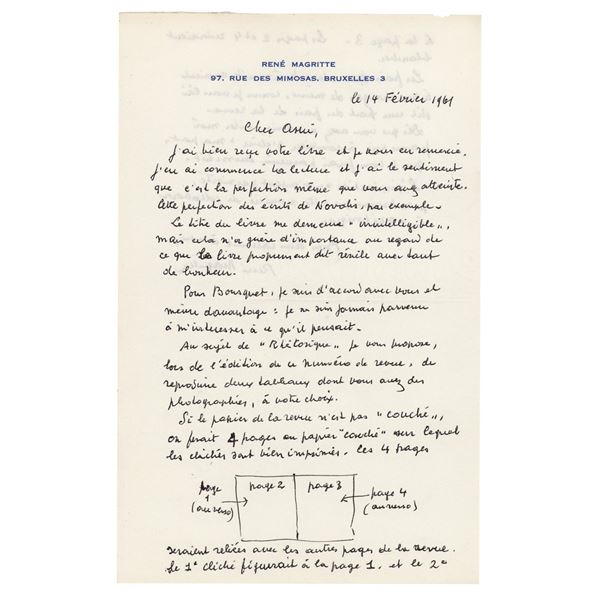 RENÉ MAGRITTE
97, RUE DES MIMOSAS, BRUXELLES 3
le 14 Février 1961
Cher Ami,
J'ai bien reçu votre livre et je vous en remercie.
J'en ai commencé la lecture et j'ai le sentiment
que c'est la perfection même que vous avez atteinte.
Cette perfection des écrits de Novalis, par exemple.
Le titre du livre me demeure "inintelligible",
mais cela n'a guère d'importance au regard de
ce que le livre proprement dit révèle avec tant
de bonheur.
Pour Bousquet, je suis d'accord avec vous et
même davantage : je ne suis jamais parvenu
à m'intéresser à ce qu'il pensait.
Au sujet de "Rhétorique" je vous propose,
lors de l'édition de ce numéro de revue, de
reproduire deux tableaux dont vous avez des
photographies, à votre choix.
Si le papier de la revue n'est pas "couché",
on ferait 4 pages en papier "couché" sur lequel
les clichés sont bien imprimés. Les 4 pages
page 1 (au verso)
page 2
page 3
page 4 (au verso)
seraient reliées avec les autres pages de la revue.
Le 1er cliché figurait à la page 1, et le 2e